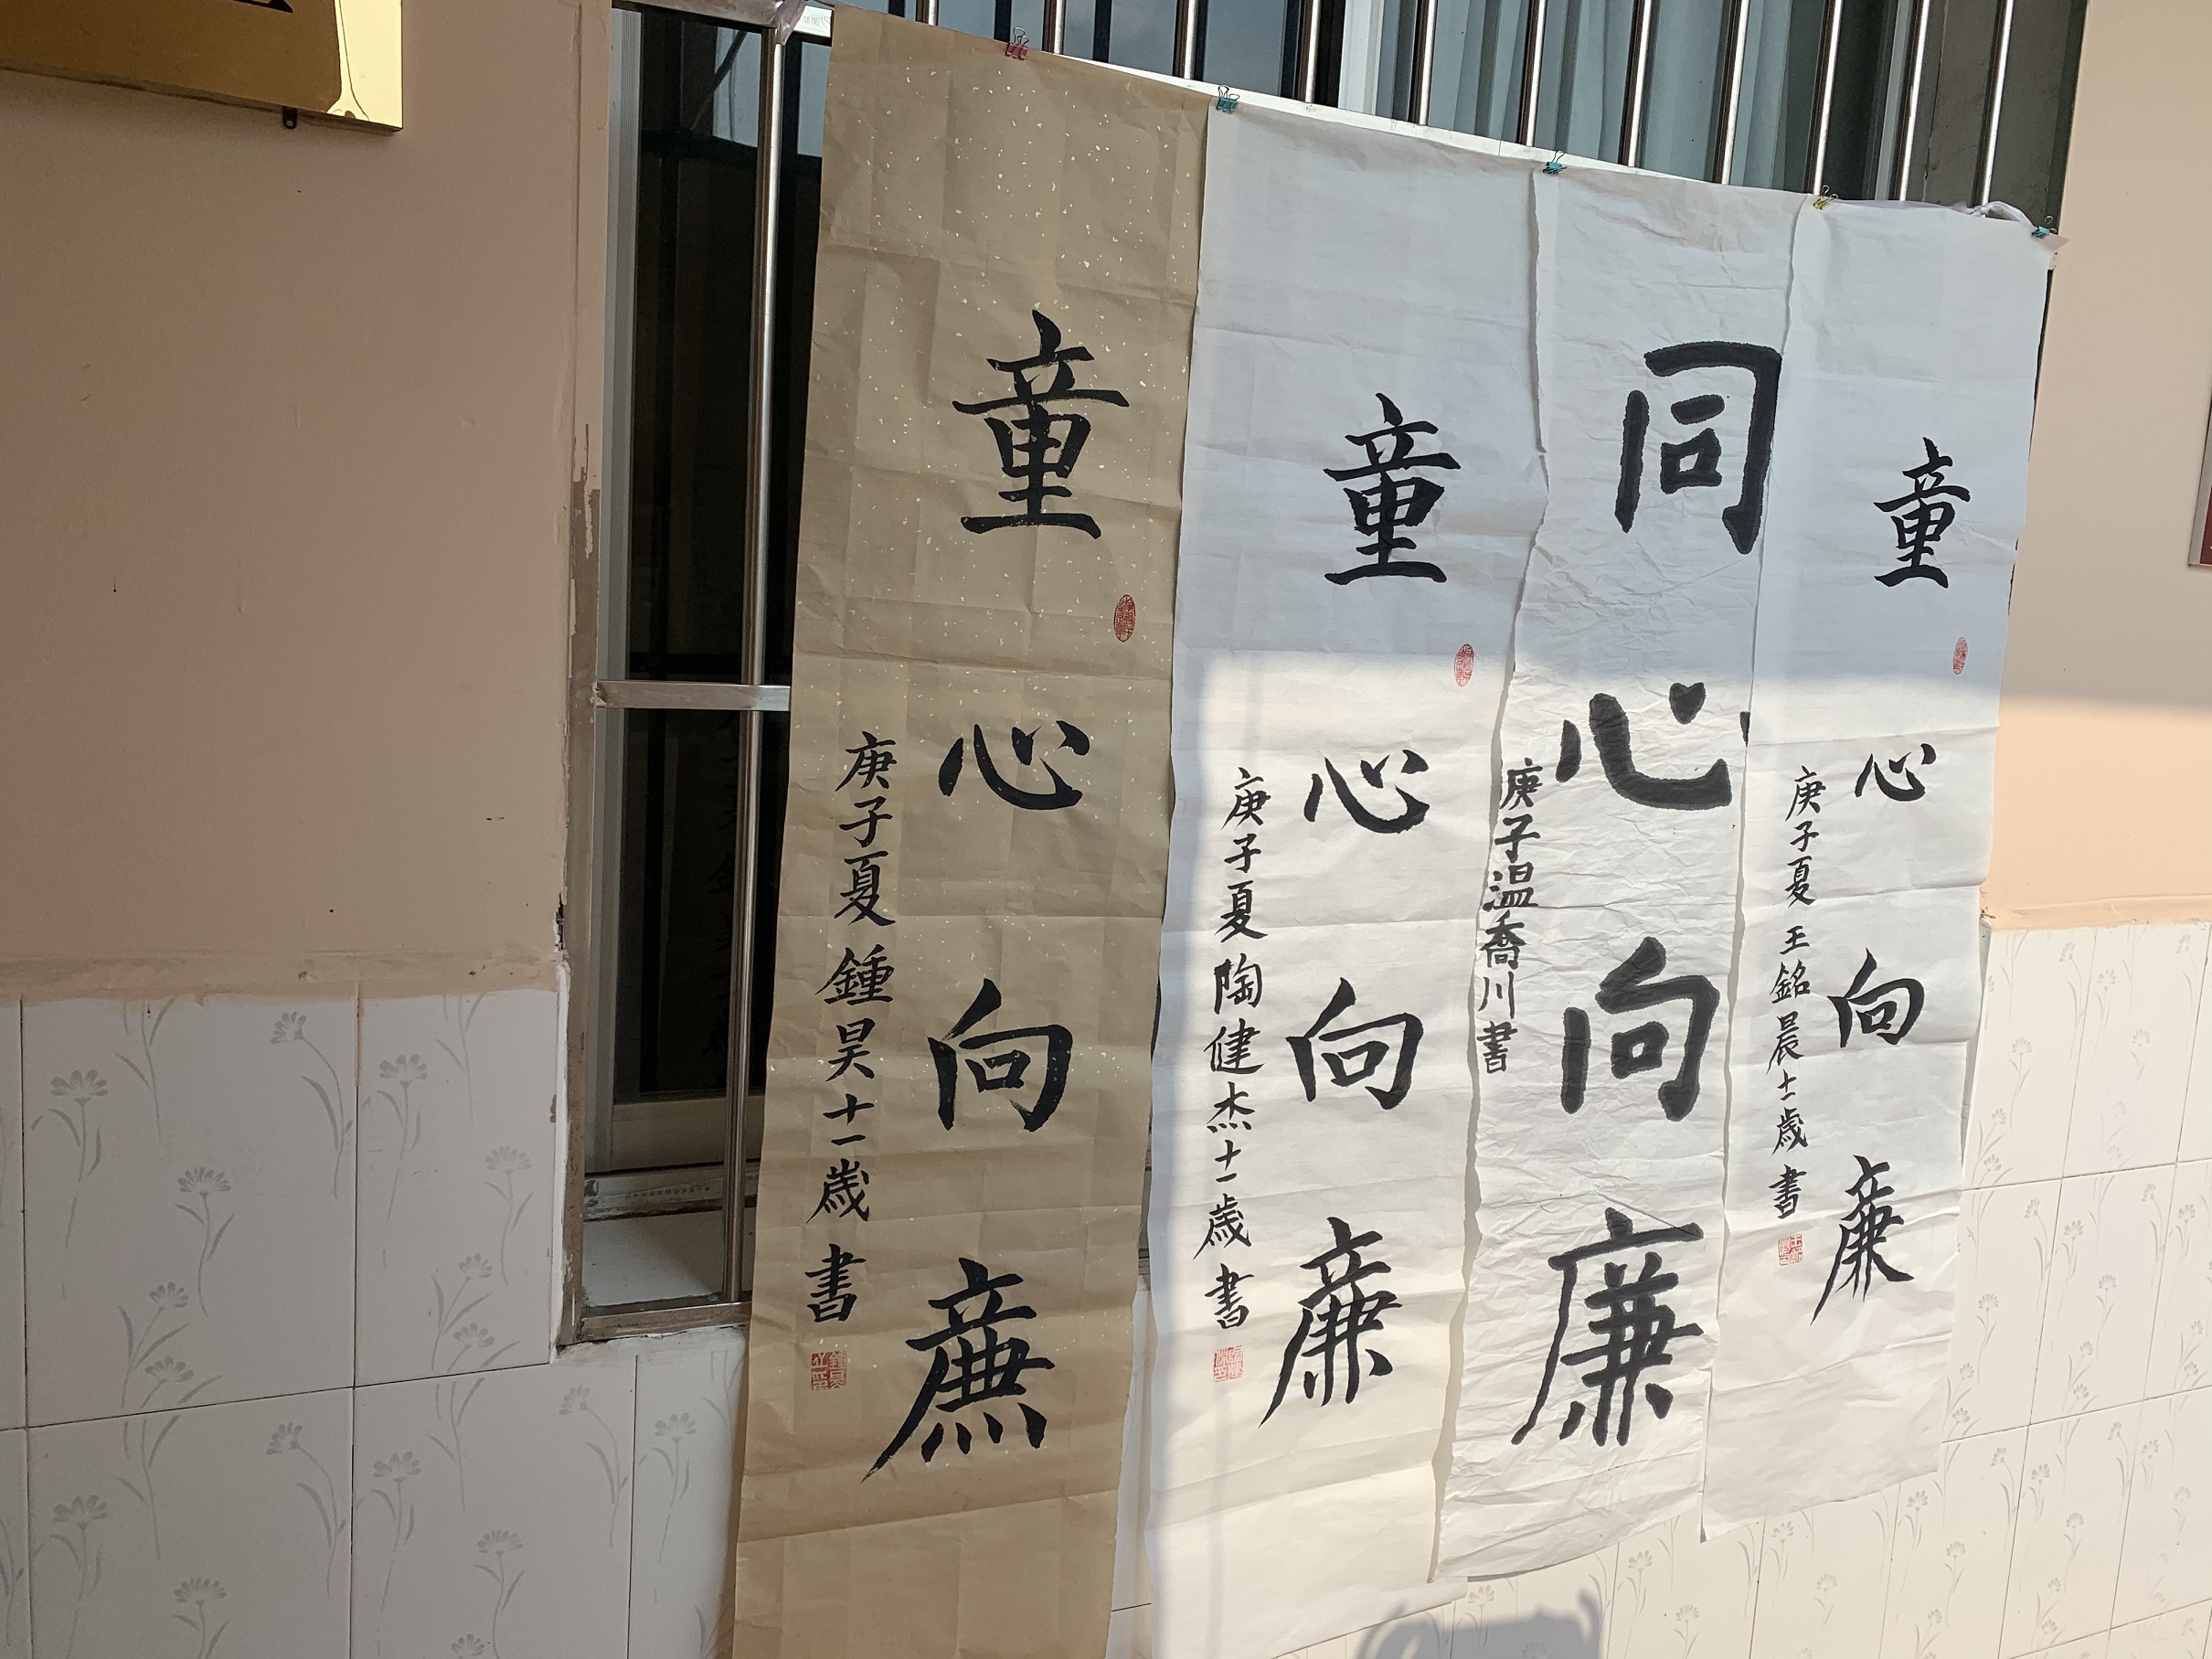 童心向廉
庚子夏 鍾昊十一歲 書
童心向廉
庚子夏 陶健杰十一歲 書
同心向廉
庚子温喬川書
童心向廉
庚子夏 王銘晨十一歲 書